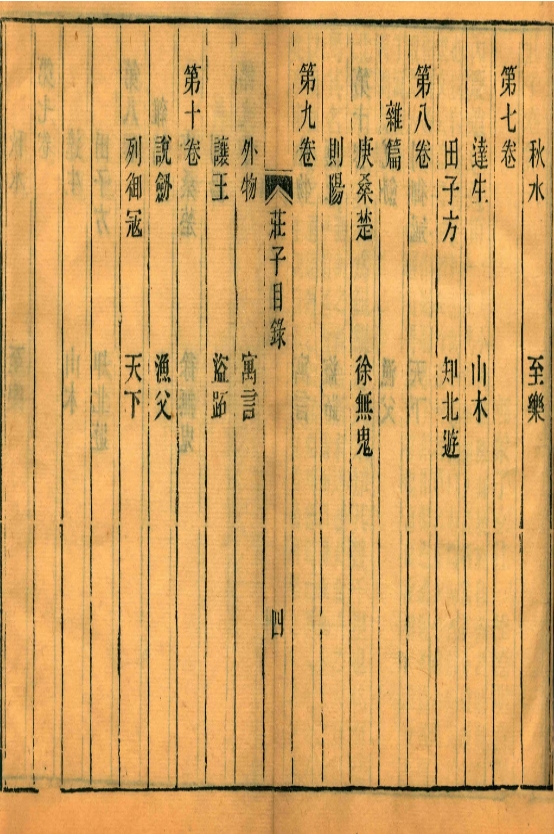 秋水 至樂
第七卷
達生 山木
田子方 知北遊
第八卷
雜篇
庚桑楚 徐無鬼
則陽
第九卷
莊子目錄 四
外物 寓言
讓王 盜跖
第十卷
說劒 漁父
列御寇 天下